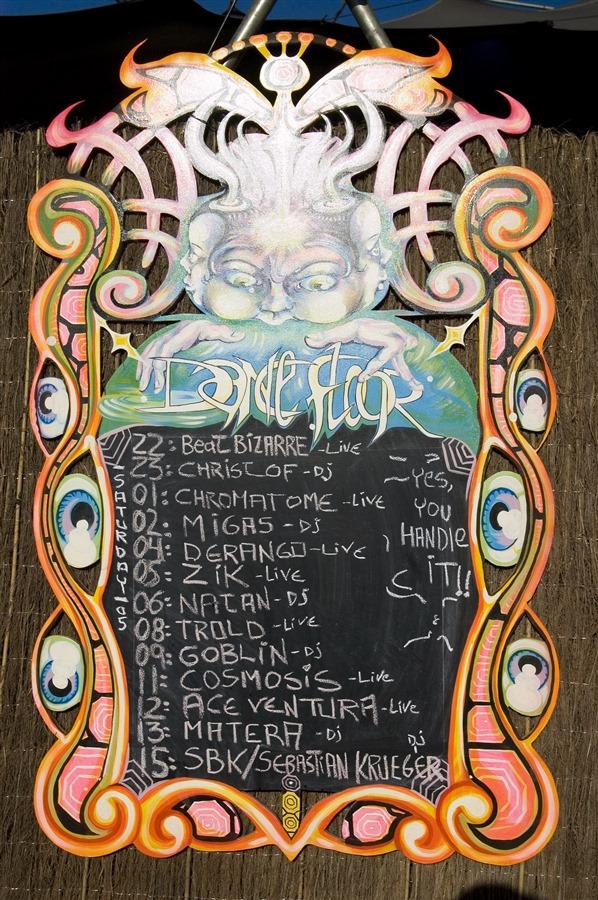 DANCE FLOOR
22: BEAT BIZARRE - LIVE
23: CHRISTOF - DJ
01: CHROMATOME - LIVE
02: MIGAS - DJ
04: DERANGO - LIVE
05: ZIK - LIVE
06: NATAN - DJ
08: TROLD - LIVE
09: GOBLIN - DJ
11: COSMOSIS - LIVE
12: ACE VENTURA - LIVE
13: MATERA - DJ
15: SBK/SEBASTIAN KRUEGER DJ
SATURDAY-05
YES,
YOU
HANDLE
IT!!